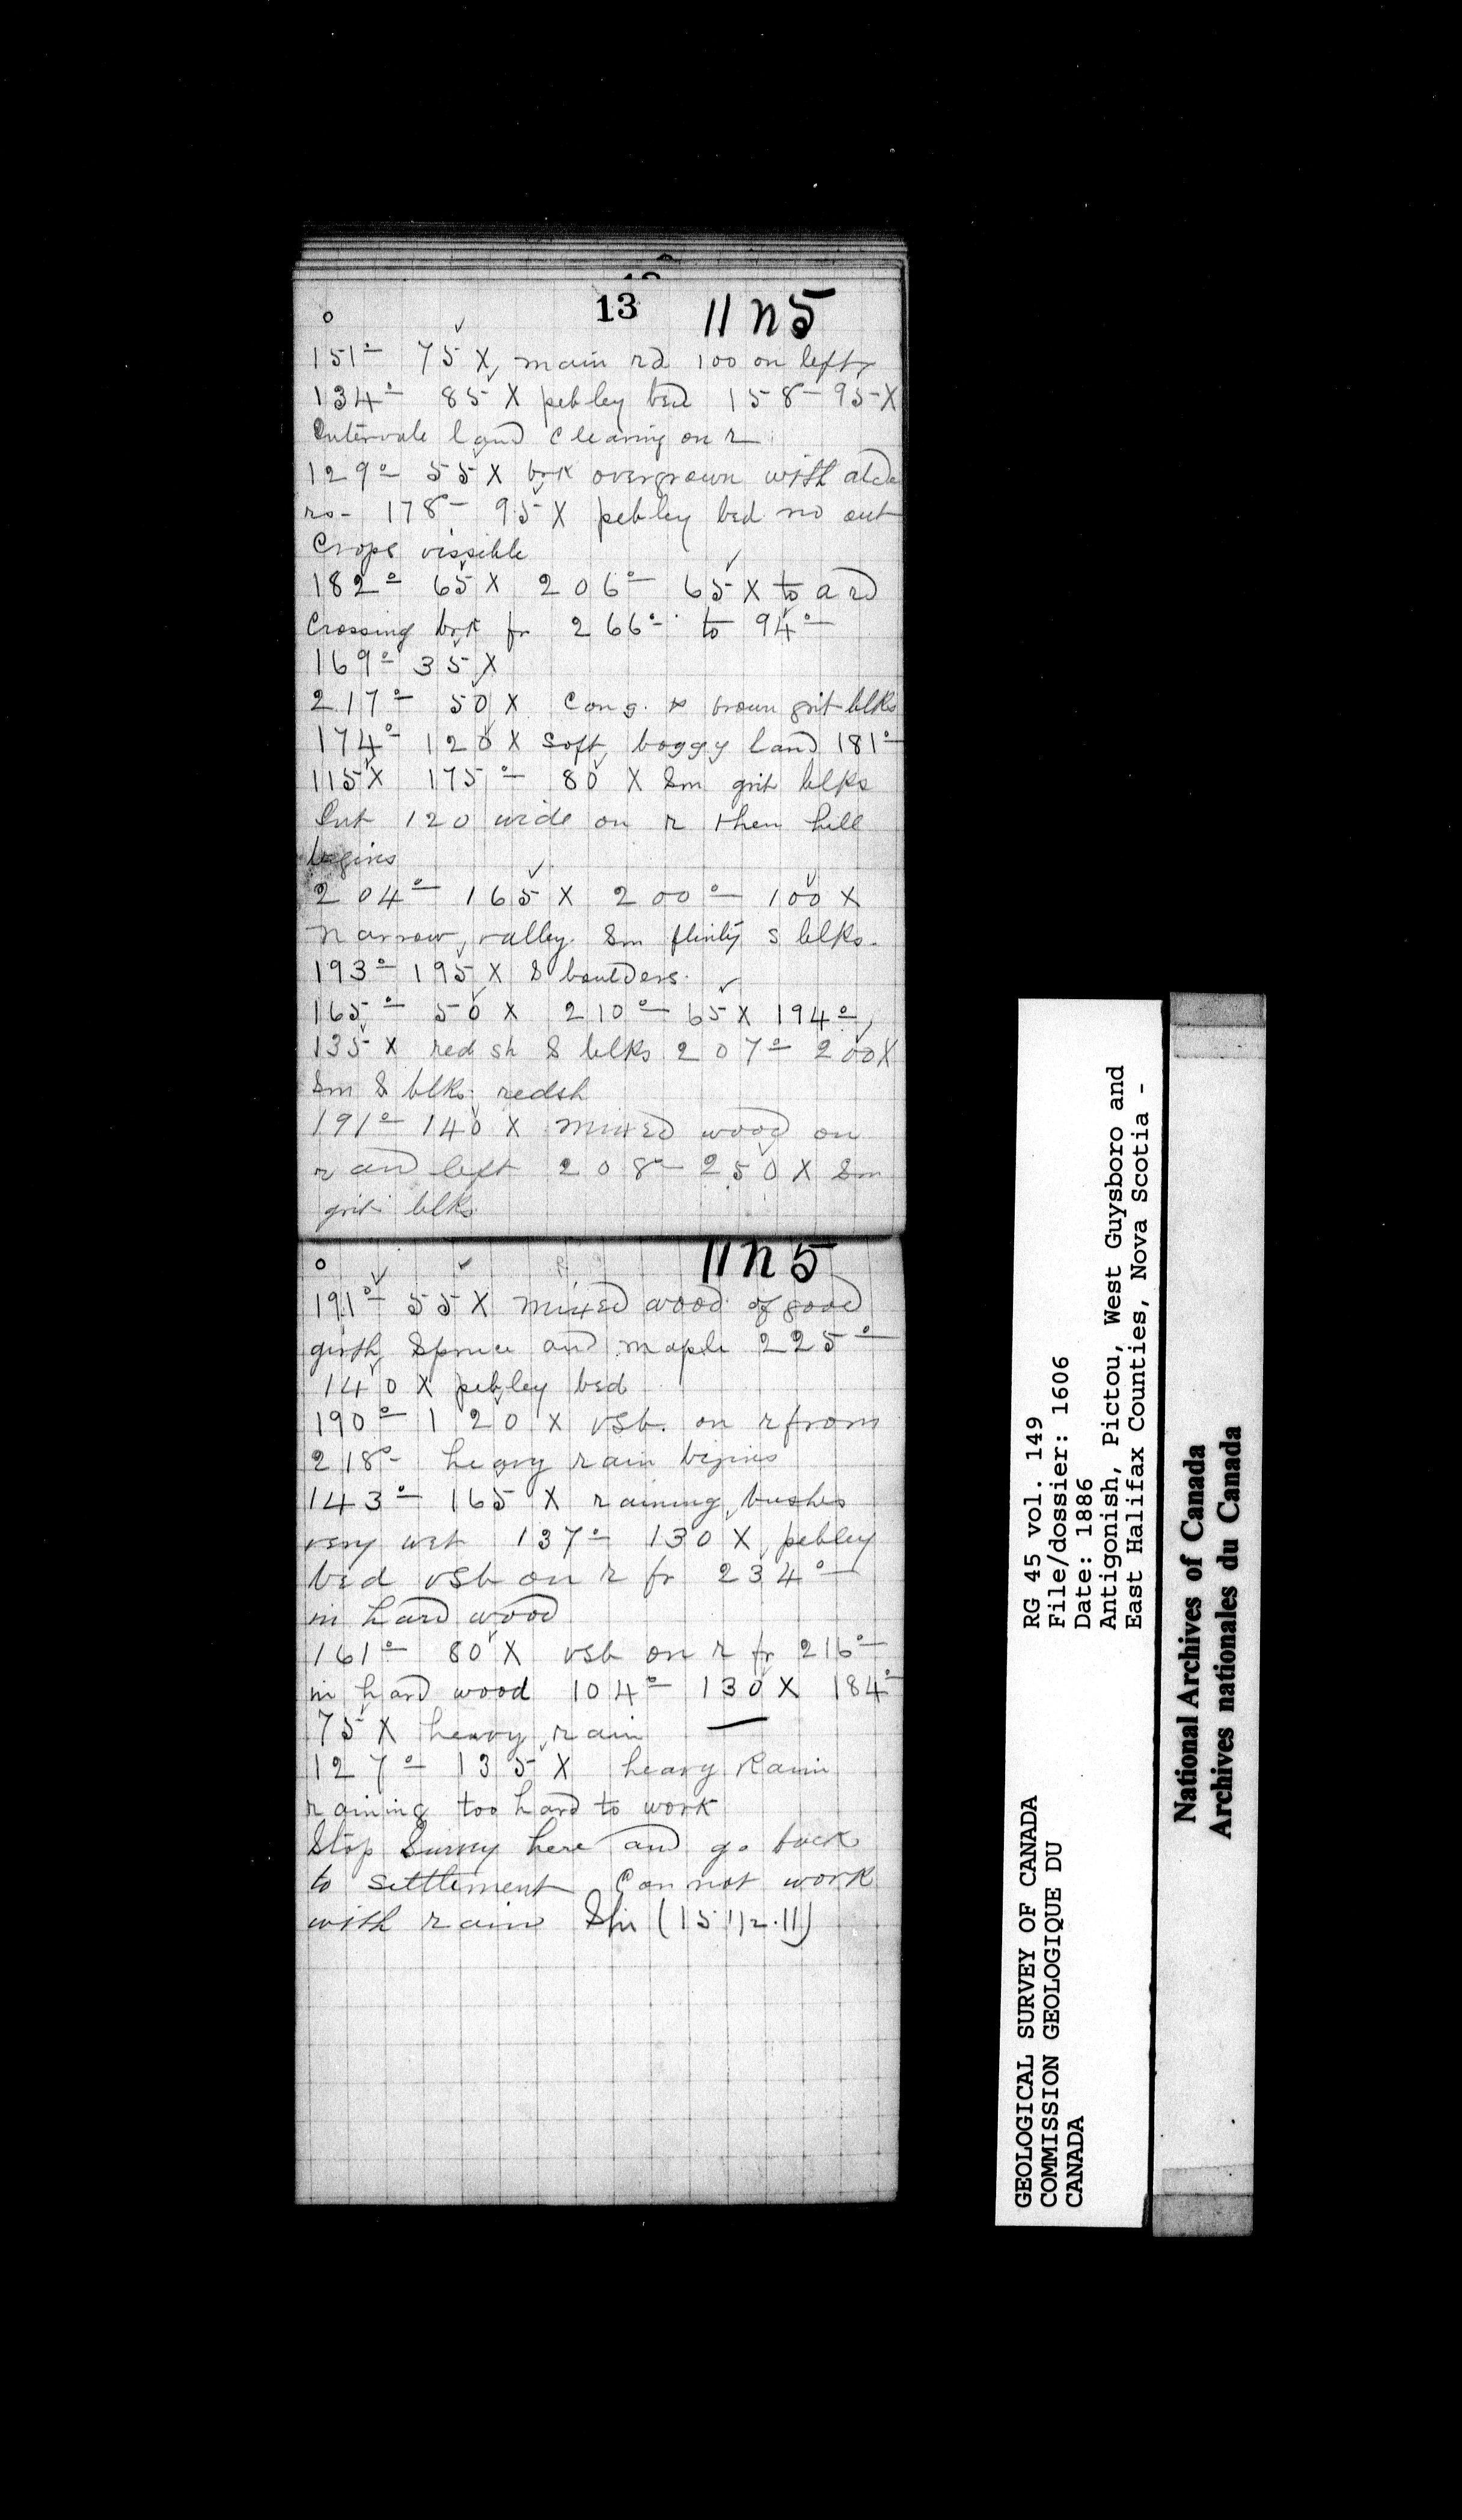 13 11 N 5
151°- 75 X main rd 100 on left
134°- 85 X pebley bed 158°- 95 X
Intervale land clearing on r
129°- 55 X brk overgrown with alde
rs - 178°- 95 X pebley bed no out
crops vissible
182°- 65 X 206°- 65 X to a rd
Crossing brk fr 266°- to 94°-
169°- 35 X
217°- 50 X Cong. & brown grit blks
174°- 120 X Soft boggy land 181°-
115 X 175°- 80 X Sm grit blks
Int 120 wide on r then hill
begins
204°- 165 X 200°- 100 X
Narrow valley. Sm flinty s blks.
193°- 195 X S boulders.
165°- 50 X 210°- 65 X 194°-
135 X red sh S blks 207°- 200 X
Sm S blks redsh
191°- 140 X mixed wood on
r and left 208°- 250 X Sm
grit blks
11 N 5
191°- 55 X mixed wood of good
girth Spruce and maple 225°-
140 X pebley bed
190°- 120 X vsb. on r from
218°- heavy rain begins
143°- 165 X raining, bushes
very wet 137°- 130 X pebley
bed vsb on r fr 234°-
in hard wood
161°- 80 X vsb on r fr 216°-
in hard wood 104°- 130 X 184°-
75 X heavy rain —
127°- 135 X heavy Rain
raining too hard to work
Stop Survey here and go back
to settlement Can not work
with rain
GEOLOGICAL SURVEY OF CANADA
COMMISSION GEOLOGIQUE DU
CANADA
RG 45 vol. 149
File/dossier: 1606
Date: 1886
Antigonish, Pictou, West Guysboro and
East Halifax Counties, Nova Scotia -
National Archives of Canada
Archives nationales du Canada